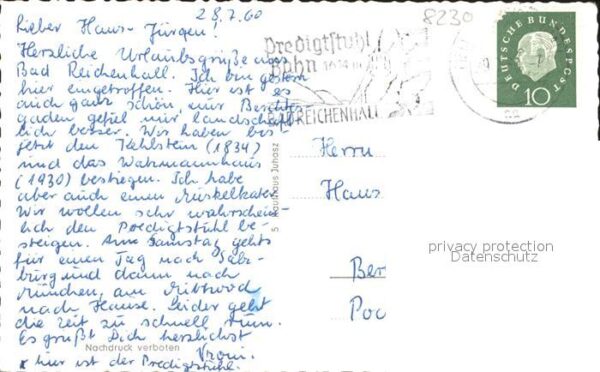 28.7.60
Lieber Hans-Jürgen!
Herzliche Urlaubsgrüße aus
Bad Reichenhall. Ich bin gestern
hier eingetroffen. Hier ist es
auch ganz schön, mir Berchtes-
gaden gefiel mir landschaft-
lich besser. Wir haben bis
jetzt den Kehlstein (1834)
und das Watzmannhaus
(1930) bestiegen. Ich habe
aber auch einen Muskelkater.
Wir wollen sehr wahrschein-
lich den Predigtstuhl be-
steigen. Am Samstag gehts
für einen Tag nach Salz-
burg und dann nach
München, am Mittwoch
nach Hause. Leider geht
die Zeit zu schnell rum.
Es grüßt Dich herzlichst
Vroni.
x hier ist der Predigtstuhl.
Nachdruck verboten
5 Kaufhaus Juhasz
8230
Predigtstuhl
Bahn 1614 m
BAD REICHENHALL
DEUTSCHE BUNDESPOST
10
Herrn
Hans
Ber
Poc
privacy protection
Datenschutz